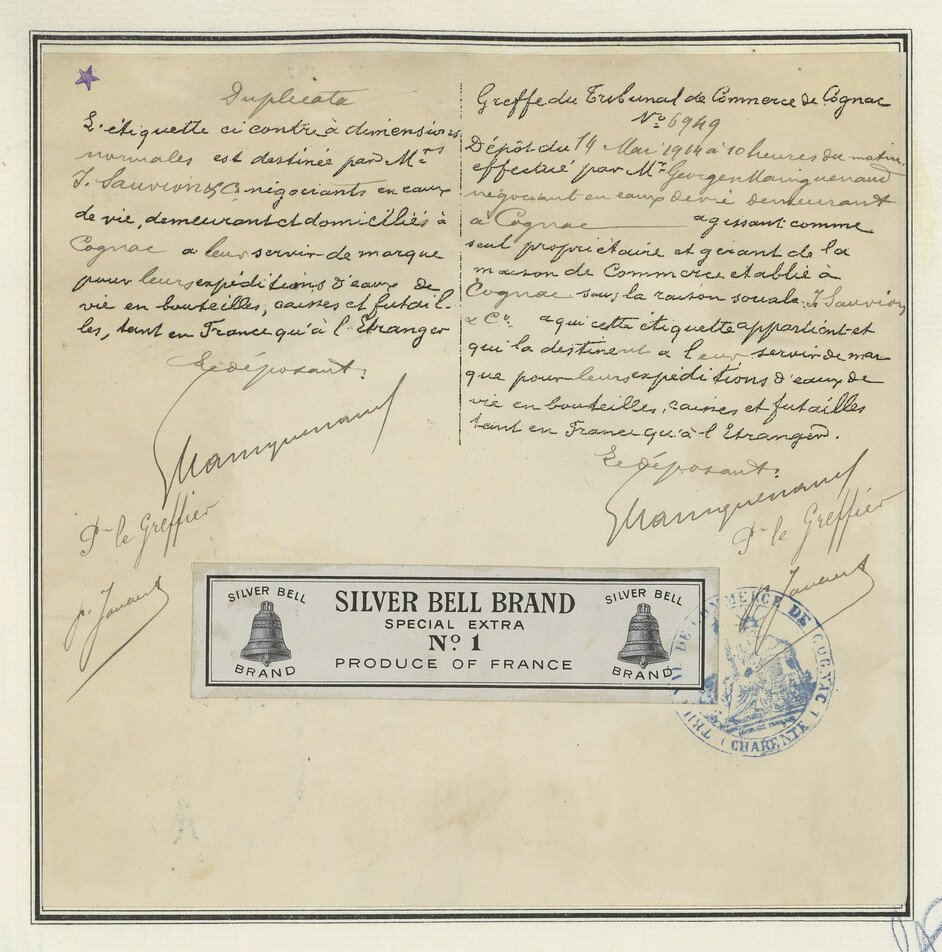 Duplicata
L'étiquette ci contre à dimensions
normales est destinée par Mrs
J. Sauvion & Co négociants en eaux
de vie, demeurant et domiciliés à
Cognac a leur servir de marque
pour leurs expéditions d'eaux de
vie en bouteilles, caisses et futail-
les, tant en France qu'à l'Etranger
Le déposant:
GMainguenaud
Pr le Greffier
Greffe du Tribunal de Commerce de Cognac
No 6949
Dépôt du 14 Mai 1914 à 10 heures du matin,
effectué par Mr Georges Mainguenaud
négociant en eaux de vie demeurant
a Cognac agissant comme
seul propriétaire et gérant de la
maison de Commerce etablie à
Cognac sous la raison sociale J. Sauvion
& Co a qui cette étiquette appartient et
qui la destinent a leur servir de mar
que pour leurs expéditions d'eaux de
vie en bouteilles, caisses et futailles
tant en France qu'à l'Etranger.
Le déposant:
GMainguenaud
Pr le Greffier
SILVER BELL
BRAND
SILVER BELL BRAND
SPECIAL EXTRA
No. 1
PRODUCE OF FRANCE
SILVER BELL
BRAND
TRIBUNAL DE COMMERCE DE COGNAC
(CHARENTE)